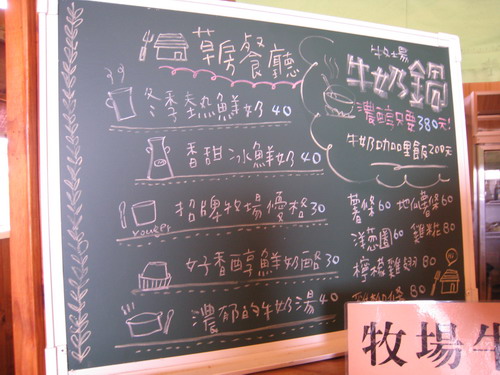 草房餐廳
冬季熱鮮奶 40
香甜冰鮮奶 40
招牌牧場優格 30
youger
好香醇鮮奶酪 30
濃郁的牛奶湯 40
牧場
牛奶鍋
濃醇只要380元!
牛奶咖哩飯200元
薯條60 地瓜薯條60
洋蔥圈60 雞米花80
檸檬雞翅80
80
牧場牛